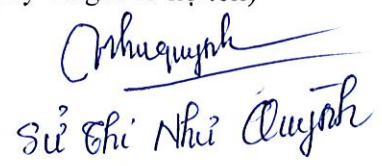 Nhuquynh
Sử Thi Như Quỳnh